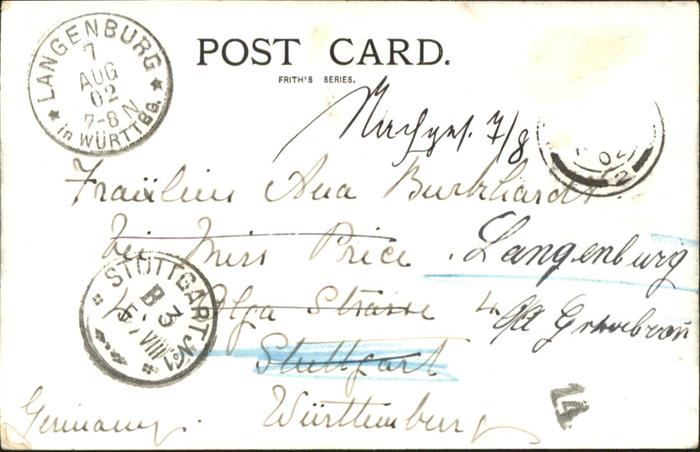 POST CARD.
FRITH'S SERIES.
LANGENBURG
7
AUG
02
7-8 N
in WÜRTTBG.
Nachges. 7/8
Fräulein Ana Burkhardt
bei Miss Price
Langenburg
4 Olga Strasse 4
Stuttgart
Württemburg
Germany.
STUTTGART. No 1
B 3
VIII
14